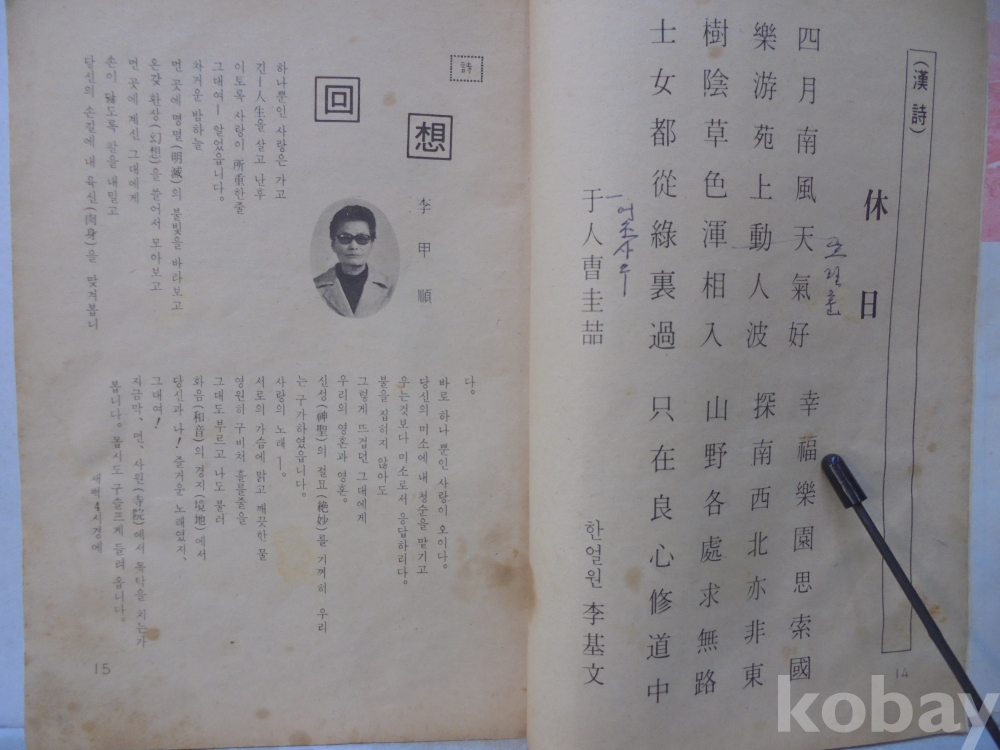 (漢詩)
休日
四月南風天氣好
樂游苑上動人波
樹陰草色渾相入
士女都從綠裏過
어조사우
于人曺圭喆
幸福樂園思索國
探南西北亦非東
山野各處求無路
只在良心修道中
한얼원 李基文
14
詩
回想
李甲順
하나뿐인 사랑은 가고
긴ー人生을 살고 난후
이토록 사랑이 所重한줄
그대여ー 알았읍니다.
차겨울 밤하늘
먼 곳에 명멸(明滅)의 불빛을 바라보고
온갖 환상(幻想)을 끌어서 모아보고
먼 곳에 계신 그대에게
손이 닳도록 팔을 내밀고
당신의 손길에 내 육신(肉身)을 맞겨봅니
다.
바로 하나 뿐인 사랑이 오이다.
당신의 미소에 내 청순을 맡기고
우는것보다 미소로서 응답하리다.
불을 집히지 않아도
그렇게 뜨겁던 그대에게
우리의 영혼과 영혼.
신성(神聖)의 절묘(絶妙)를 기꺼히 우리
는 구가하였읍니다.
사랑의 노래ー.
서로의 가슴에 맑고 깨끗한 물
영원히 구비쳐 흘물줄을
그대도 부르고 나도 불러
화음(和音)의 경지(境地)에서
당신과 나! 즐거운 노래였지.
그대여!
지금막, 먼, 사원(寺院)에서 목탁을 치는가
봅니다. 몹시도 구슬프게 들려 옵니다.
새벽4시경에
15
kobay